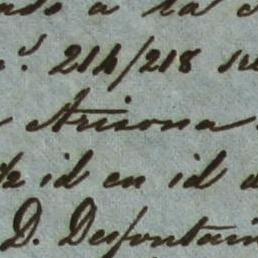 a la
214/218
Arisona
id en id
D. Desfontain